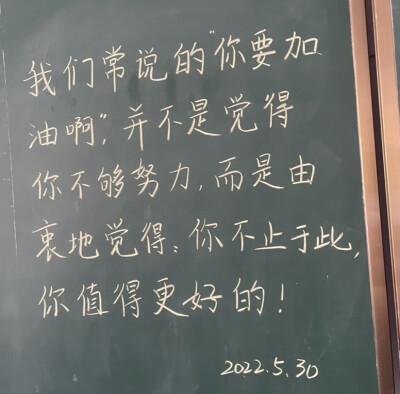 我们常说的"你要加
油啊",并不是觉得
你不够努力,而是由
衷地觉得:你不止于此,
你值得更好的!
2022.5.30